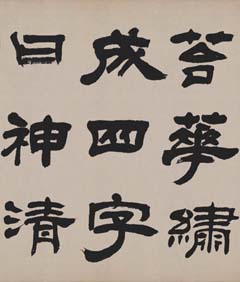 苔華繡
成四字
曰神清